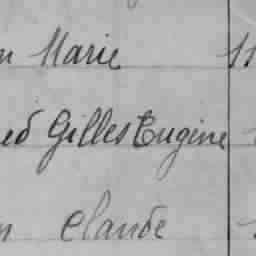 n Marie 11
ed Gilles Eugine
n Claude